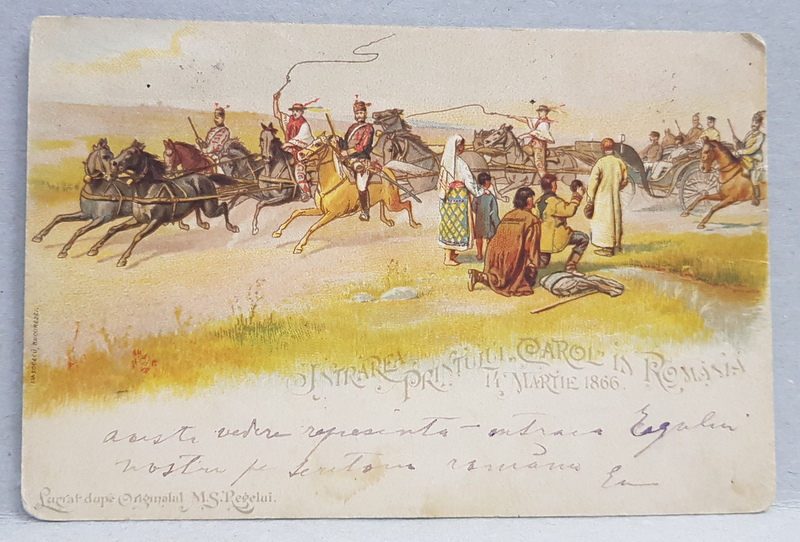 INTRAREA PRINȚULUI „CAROL” IN ROMÂNIA
14 MARTIE 1866.
aceste vedere represinta intrarea Regelui
nostru pe romănu
Lucrat după Originalul M.S. Regelui.